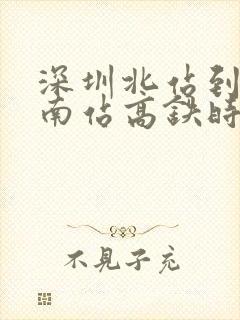 深圳北站到
南站高铁时
不见子充